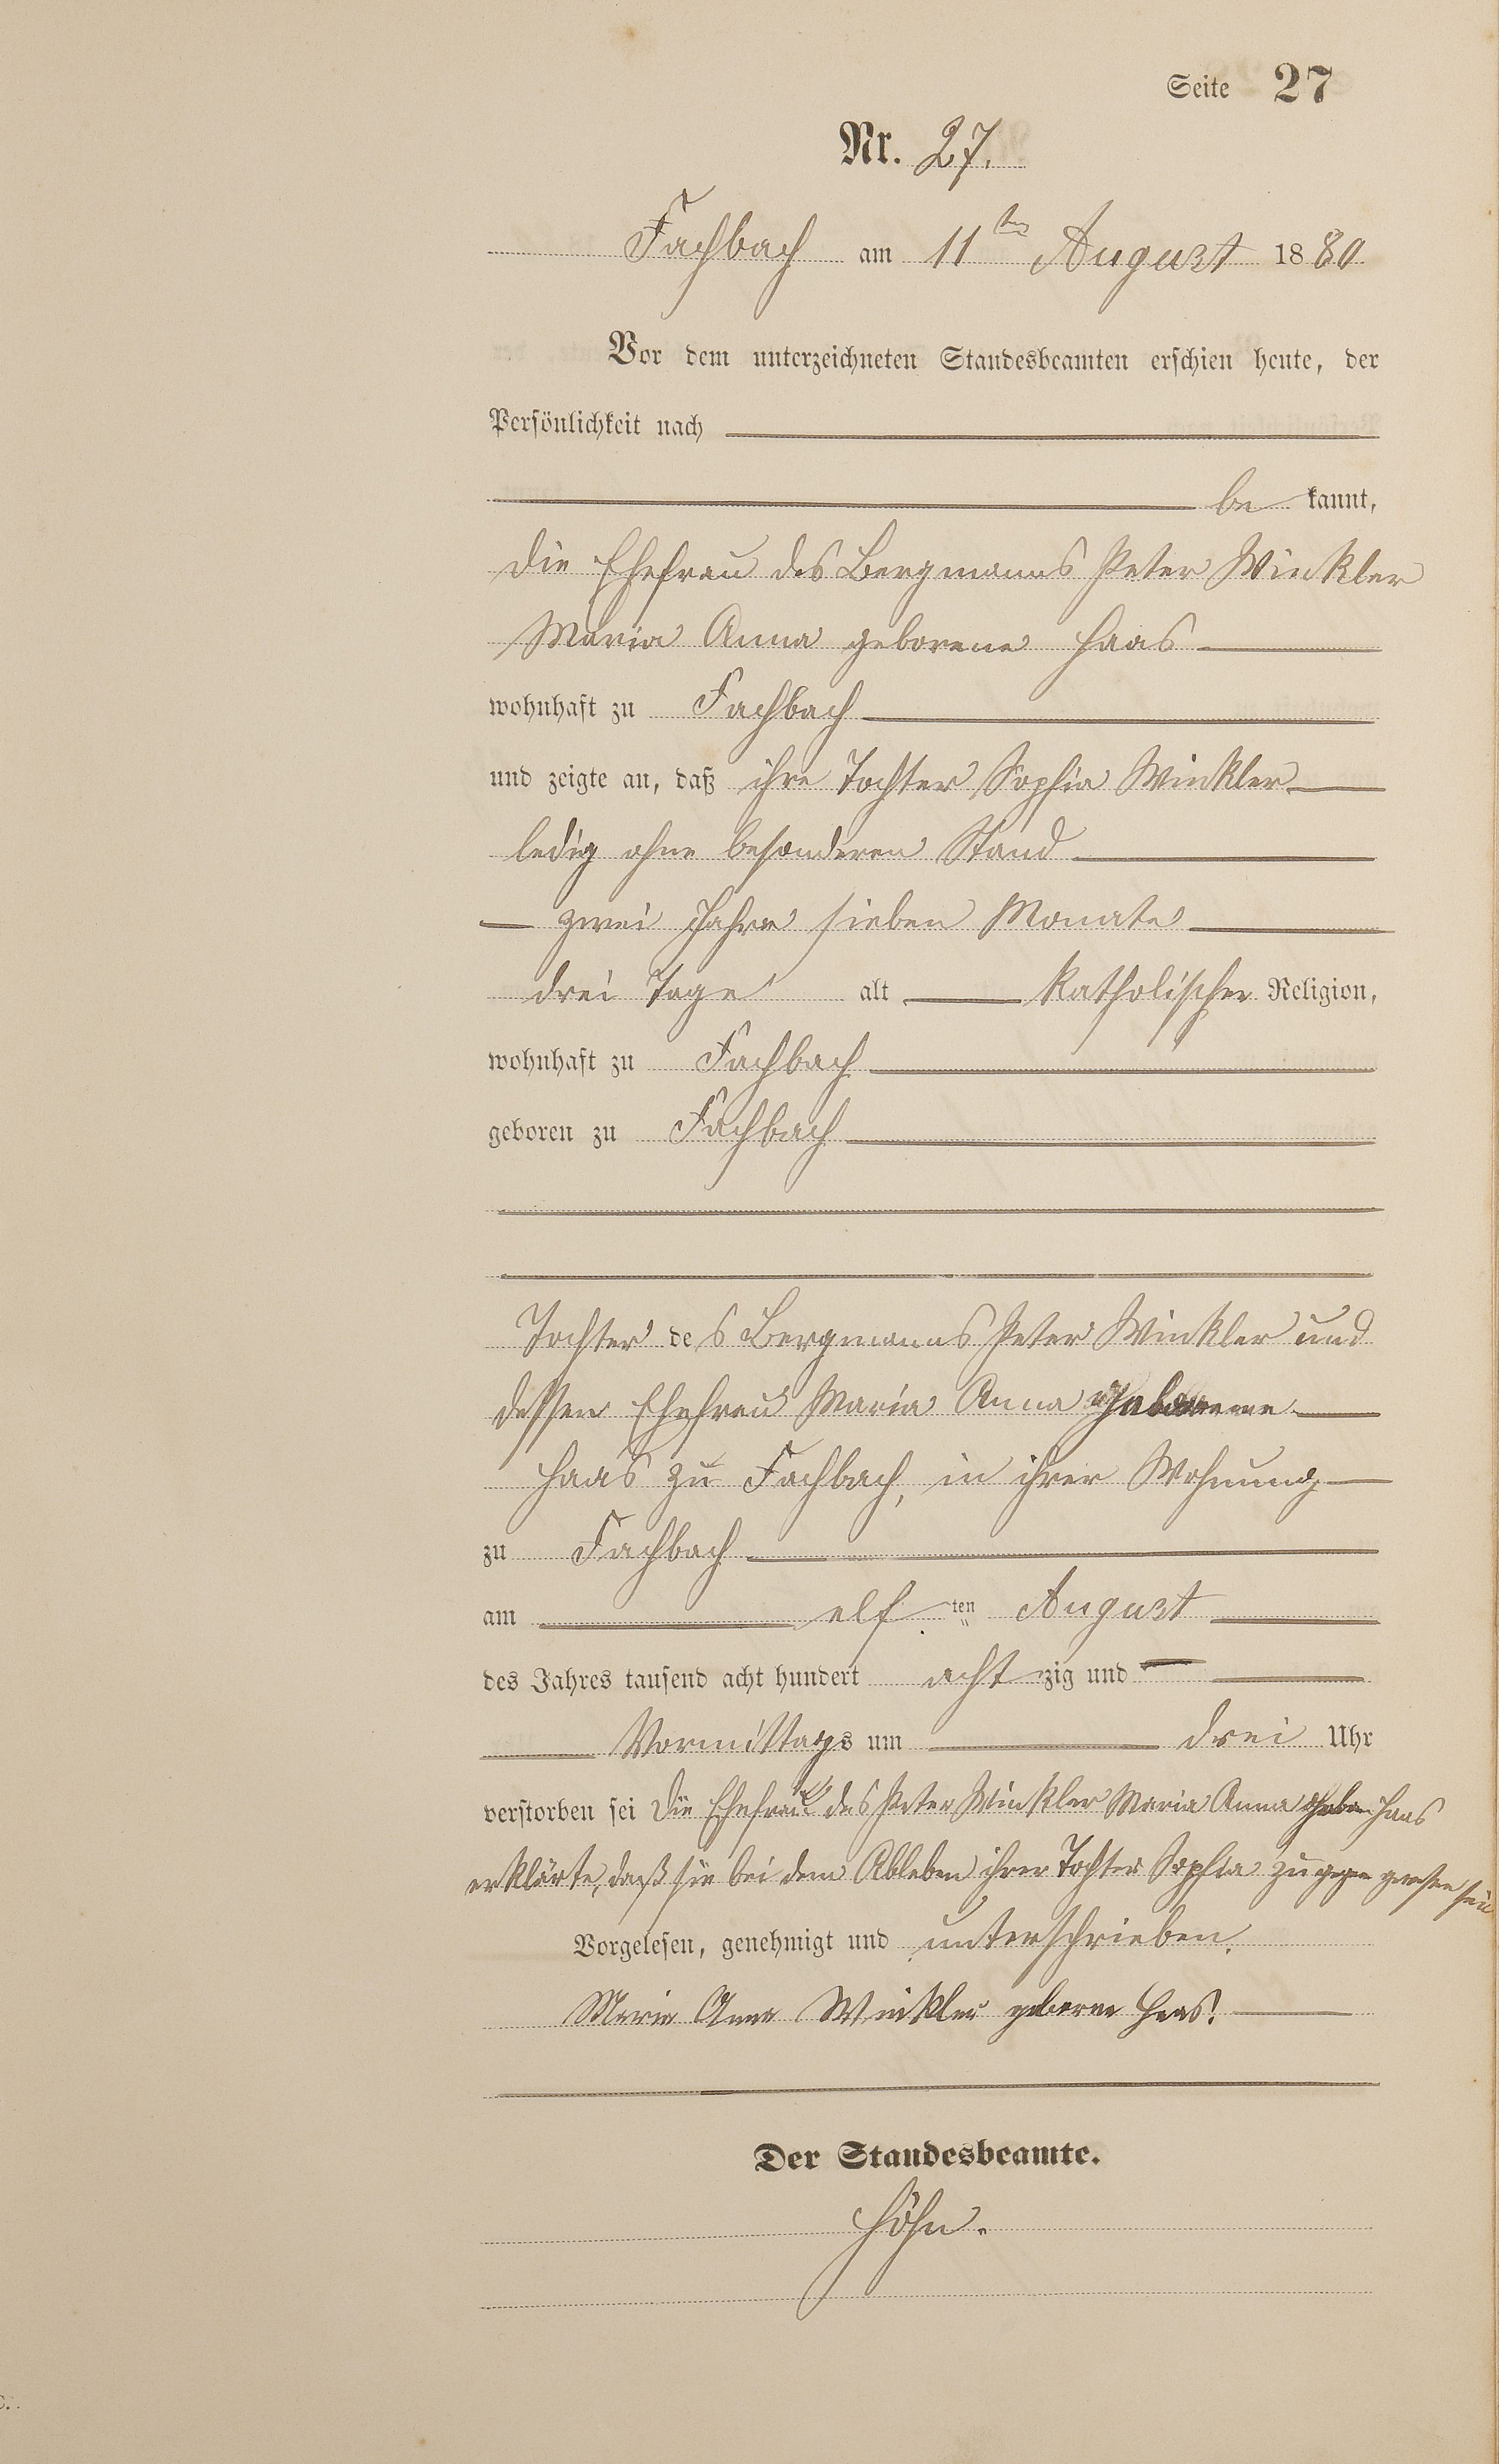 Seite 27
Nr. 27.
Fachbach am 11ten August 1880
Vor dem unterzeichneten Standesbeamten erschien heute, der
Persönlichkeit nach
be kannt,
die Ehefrau des Bergmanns Peter Winkler
Maria Anna geborene Haas
wohnhaft zu Fachbach
und zeigte an, daß ihre Tochter Sophia Winkler
ledig ohne besonderen Stand
zwei Jahre sieben Monate
drei Tage alt katholischer Religion,
wohnhaft zu Fachbach
geboren zu Fachbach
Tochter des Bergmanns Peter Winkler und
dessen Ehefrau Maria Anna geborene
Haas zu Fachbach, in ihrer Wohnung
zu Fachbach
am elf ten August
des Jahres tausend acht hundert acht zig und
Vormittags um drei Uhr
verstorben sei Die Ehefrau des Peter Winkler Maria Anna Haas
erklärte, daß sie bei dem Ableben ihrer Tochter Sophia zugegen gewesen sei
Vorgelesen, genehmigt und unterschrieben.
Maria Anna Winkler geborene Haas.
Der Standesbeamte.
Höhn.